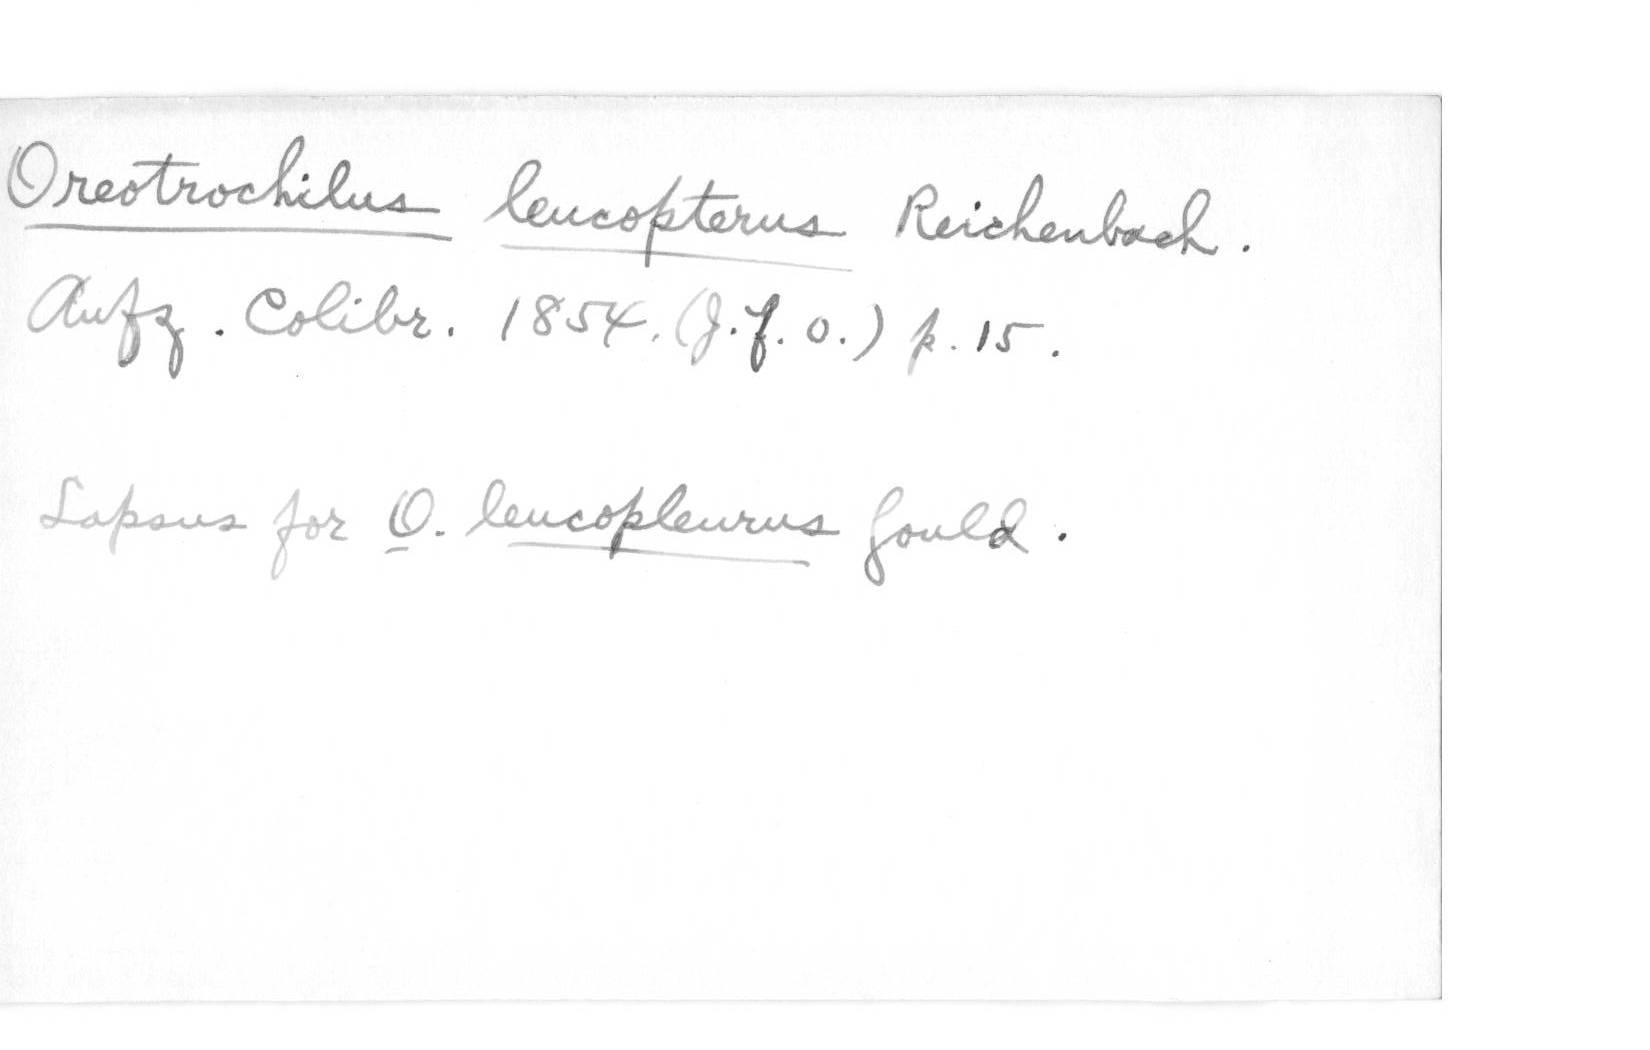 Oreotrochilus leucopterus Reichenbach.
Aufz. Colibr. 1854. (J.f.O.) p. 15.
Lapsus for O. leucopleurus Gould.